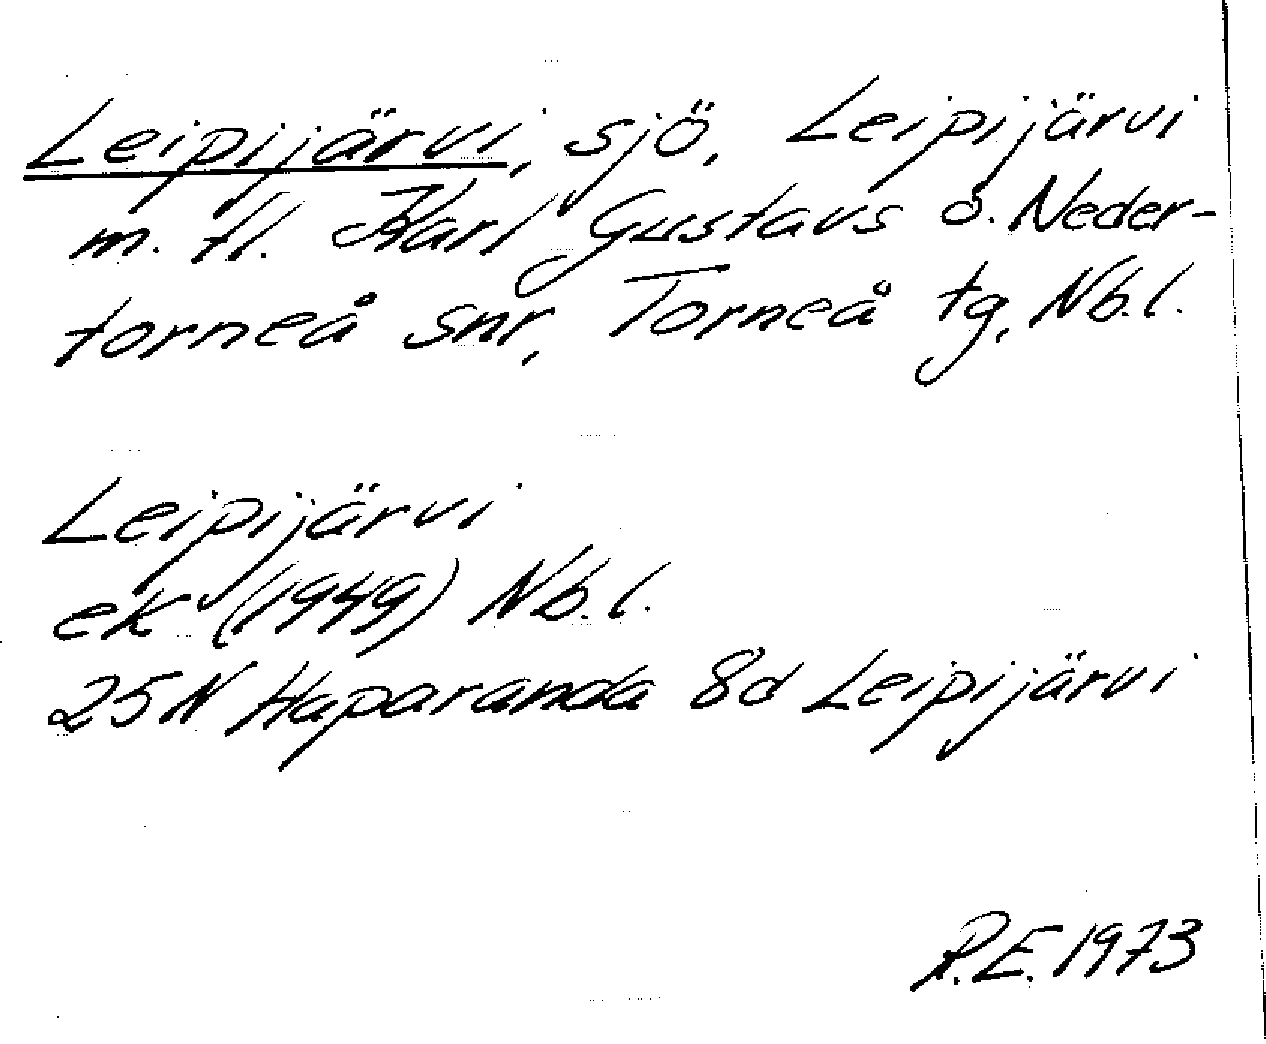 Leipijärvi, sjö, Leipijärvi
m. fl. Karl Gustavs o. Neder-
torneå snr, Torneå tg, Nb.l.
Leipijärvi
ek (1949) Nb.l.
25N Haparanda 8d Leipijärvi
R.E. 1973